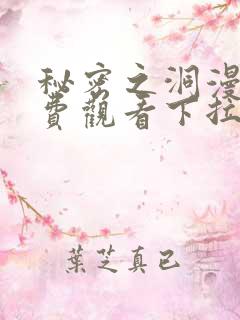 秘密之洞漫
費觀看下拉
葉芝真已